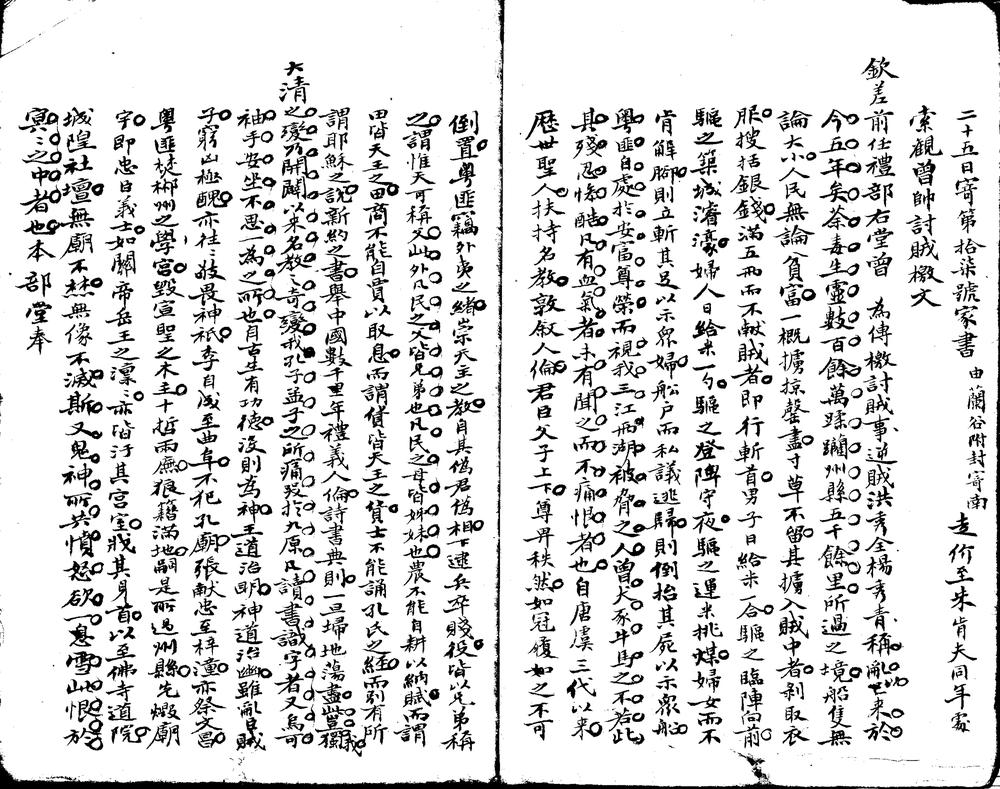 二十五日寄第拾柒號家書 由蘭谷附封寄南 走伻至朱肯夫同年處
索觀曾帥討賊檄文
欽差前任禮部右堂曾 為傳檄討賊事逆賊洪秀全楊秀青稱亂已來於
今五年矣荼毒生靈數百餘萬蹂躪州縣五千餘里所過之境船隻無
論大小人民無論貧富一概擄掠罄盡寸草不留其擄入賊中者剝取衣
服搜括銀錢滿五兩而不獻賊者即行斬首男子日給米一合驅之臨陣向前
驅之築城濬濠婦人日給米一勺驅之登陴守夜驅之運米挑煤婦女而不
肯解腳則立斬其足以示眾婦船戶而私議逃歸則倒抬其屍以示眾船
粵匪自處於安富尊榮而視我三江兩湖被脅之人曾犬豕牛馬之不若此
其殘忍慘酷凡有血氣者未有聞之而不痛恨者也自唐虞三代以來
歷世聖人扶持名教敦敘人倫君臣父子上下尊卑秩然如冠履如之不可
倒置粵匪竊外夷之緒崇天主之教自其偽君偽相下逮兵卒賤役皆以兄弟稱
之謂惟天可稱父此外凡民之父皆兄弟也凡民之母皆姊妹也農不能自耕以納賦而謂
田皆天王之田商不能自賈以取息而謂貨皆天王之貨士不能誦孔氏之經而別有所
謂耶穌之說新約之書舉中國數千里年禮義人倫詩書典則一旦埽地蕩盡豈獨我
大清之變乃開闢以來名教之奇變我孔子孟子之所痛哭於九原凡讀書識字者又烏可
袖手安坐不思一為之所也自古生有功德沒則為神王道治明神道治幽雖亂臣賊
子窮凶極醜亦往〻敬畏神祇李自成至曲阜不犯孔廟張獻忠至梓潼亦祭文昌
粵匪焚郴州之學宮毀宣聖之木主十哲兩廡狼籍滿地嗣是所過州縣先燬廟
宇即忠臣義士如關帝岳王之凜〻亦皆汙其宮室戕其身首以至佛寺道院
城隍社壇無廟不焚無像不滅斯又鬼神所共憤怒欲一息雪此恨於
冥〻之中者也本部堂奉